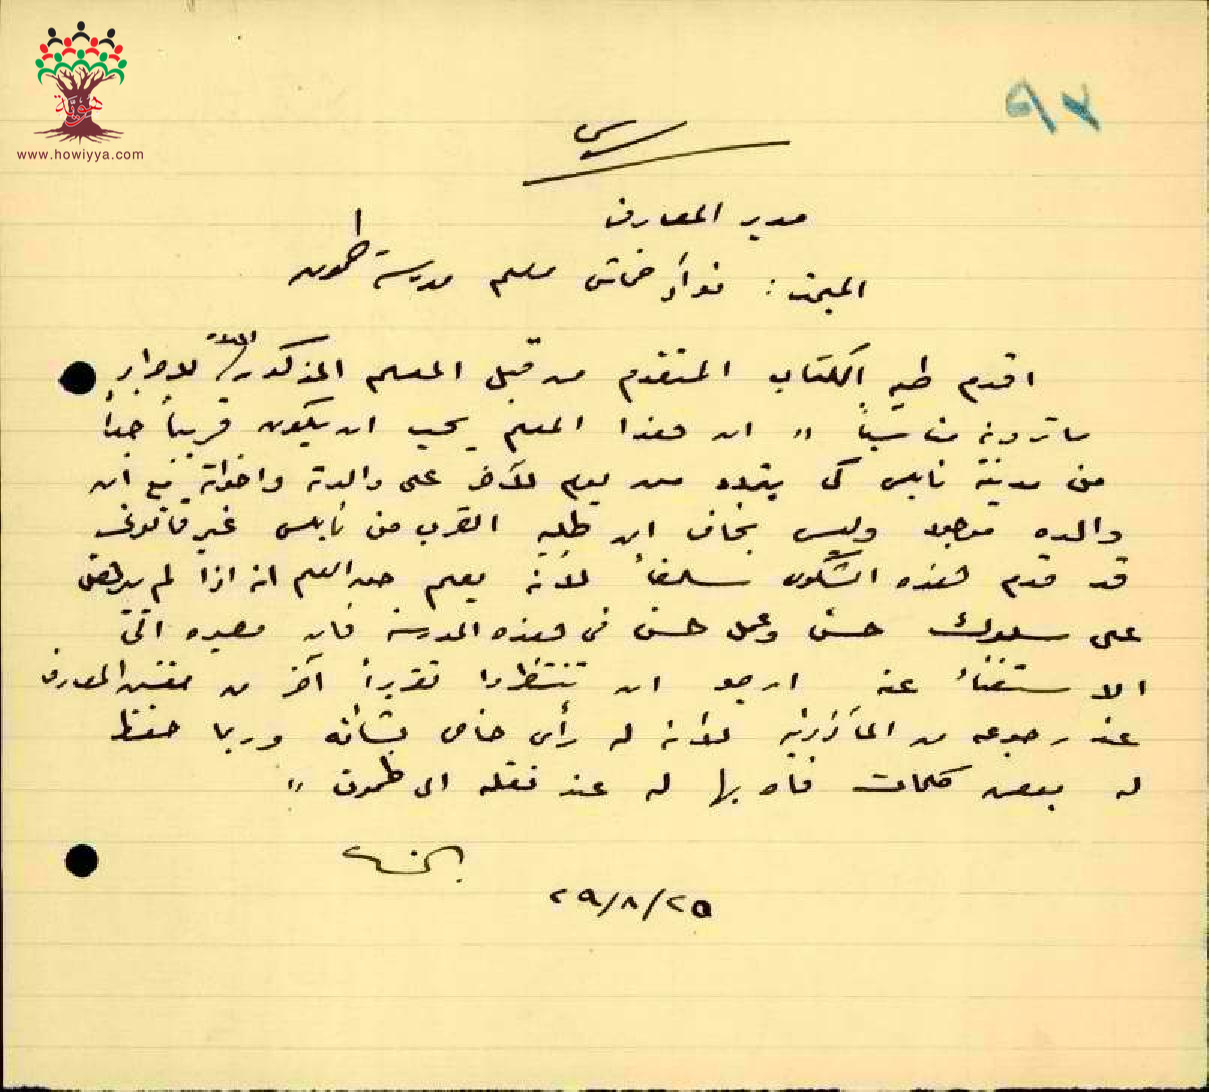 هوية
www.howiyya.com
٩٢
سري
مدير المعارف
المبحث : فؤاد خماش معلم مدرسة طمون
اقدم طيه الكتاب المتقدم من قبل المعلم المذكور اعلاه لاجراء
ما ترونه مناسباً " ان هذا المعلم يحب ان يكون قريباً جداً
من مدينة نابلس كي يتردد من يوم لآخر على والدته واخوانه مع ان
والده موجود وليس بخاف ان طلبه القرب من نابلس غير قانوني
قد قدم هذه الشكوى سلفاً لأنه يعلم حق العلم انه اذا لم يبرهن
على سلوك حسن وعمل حسن في هذه المدرسة فان مصيره
الاستغناء عنه ارجو ان تنتظروا تقريراً آخر من مفتش المعارف
عند رجوعه من لانه له رأي خاص بشأنه وربما حفظ
له بعض كلمات فاه بها له عند نقله الى طمون "
٢٩/٨/٢٥